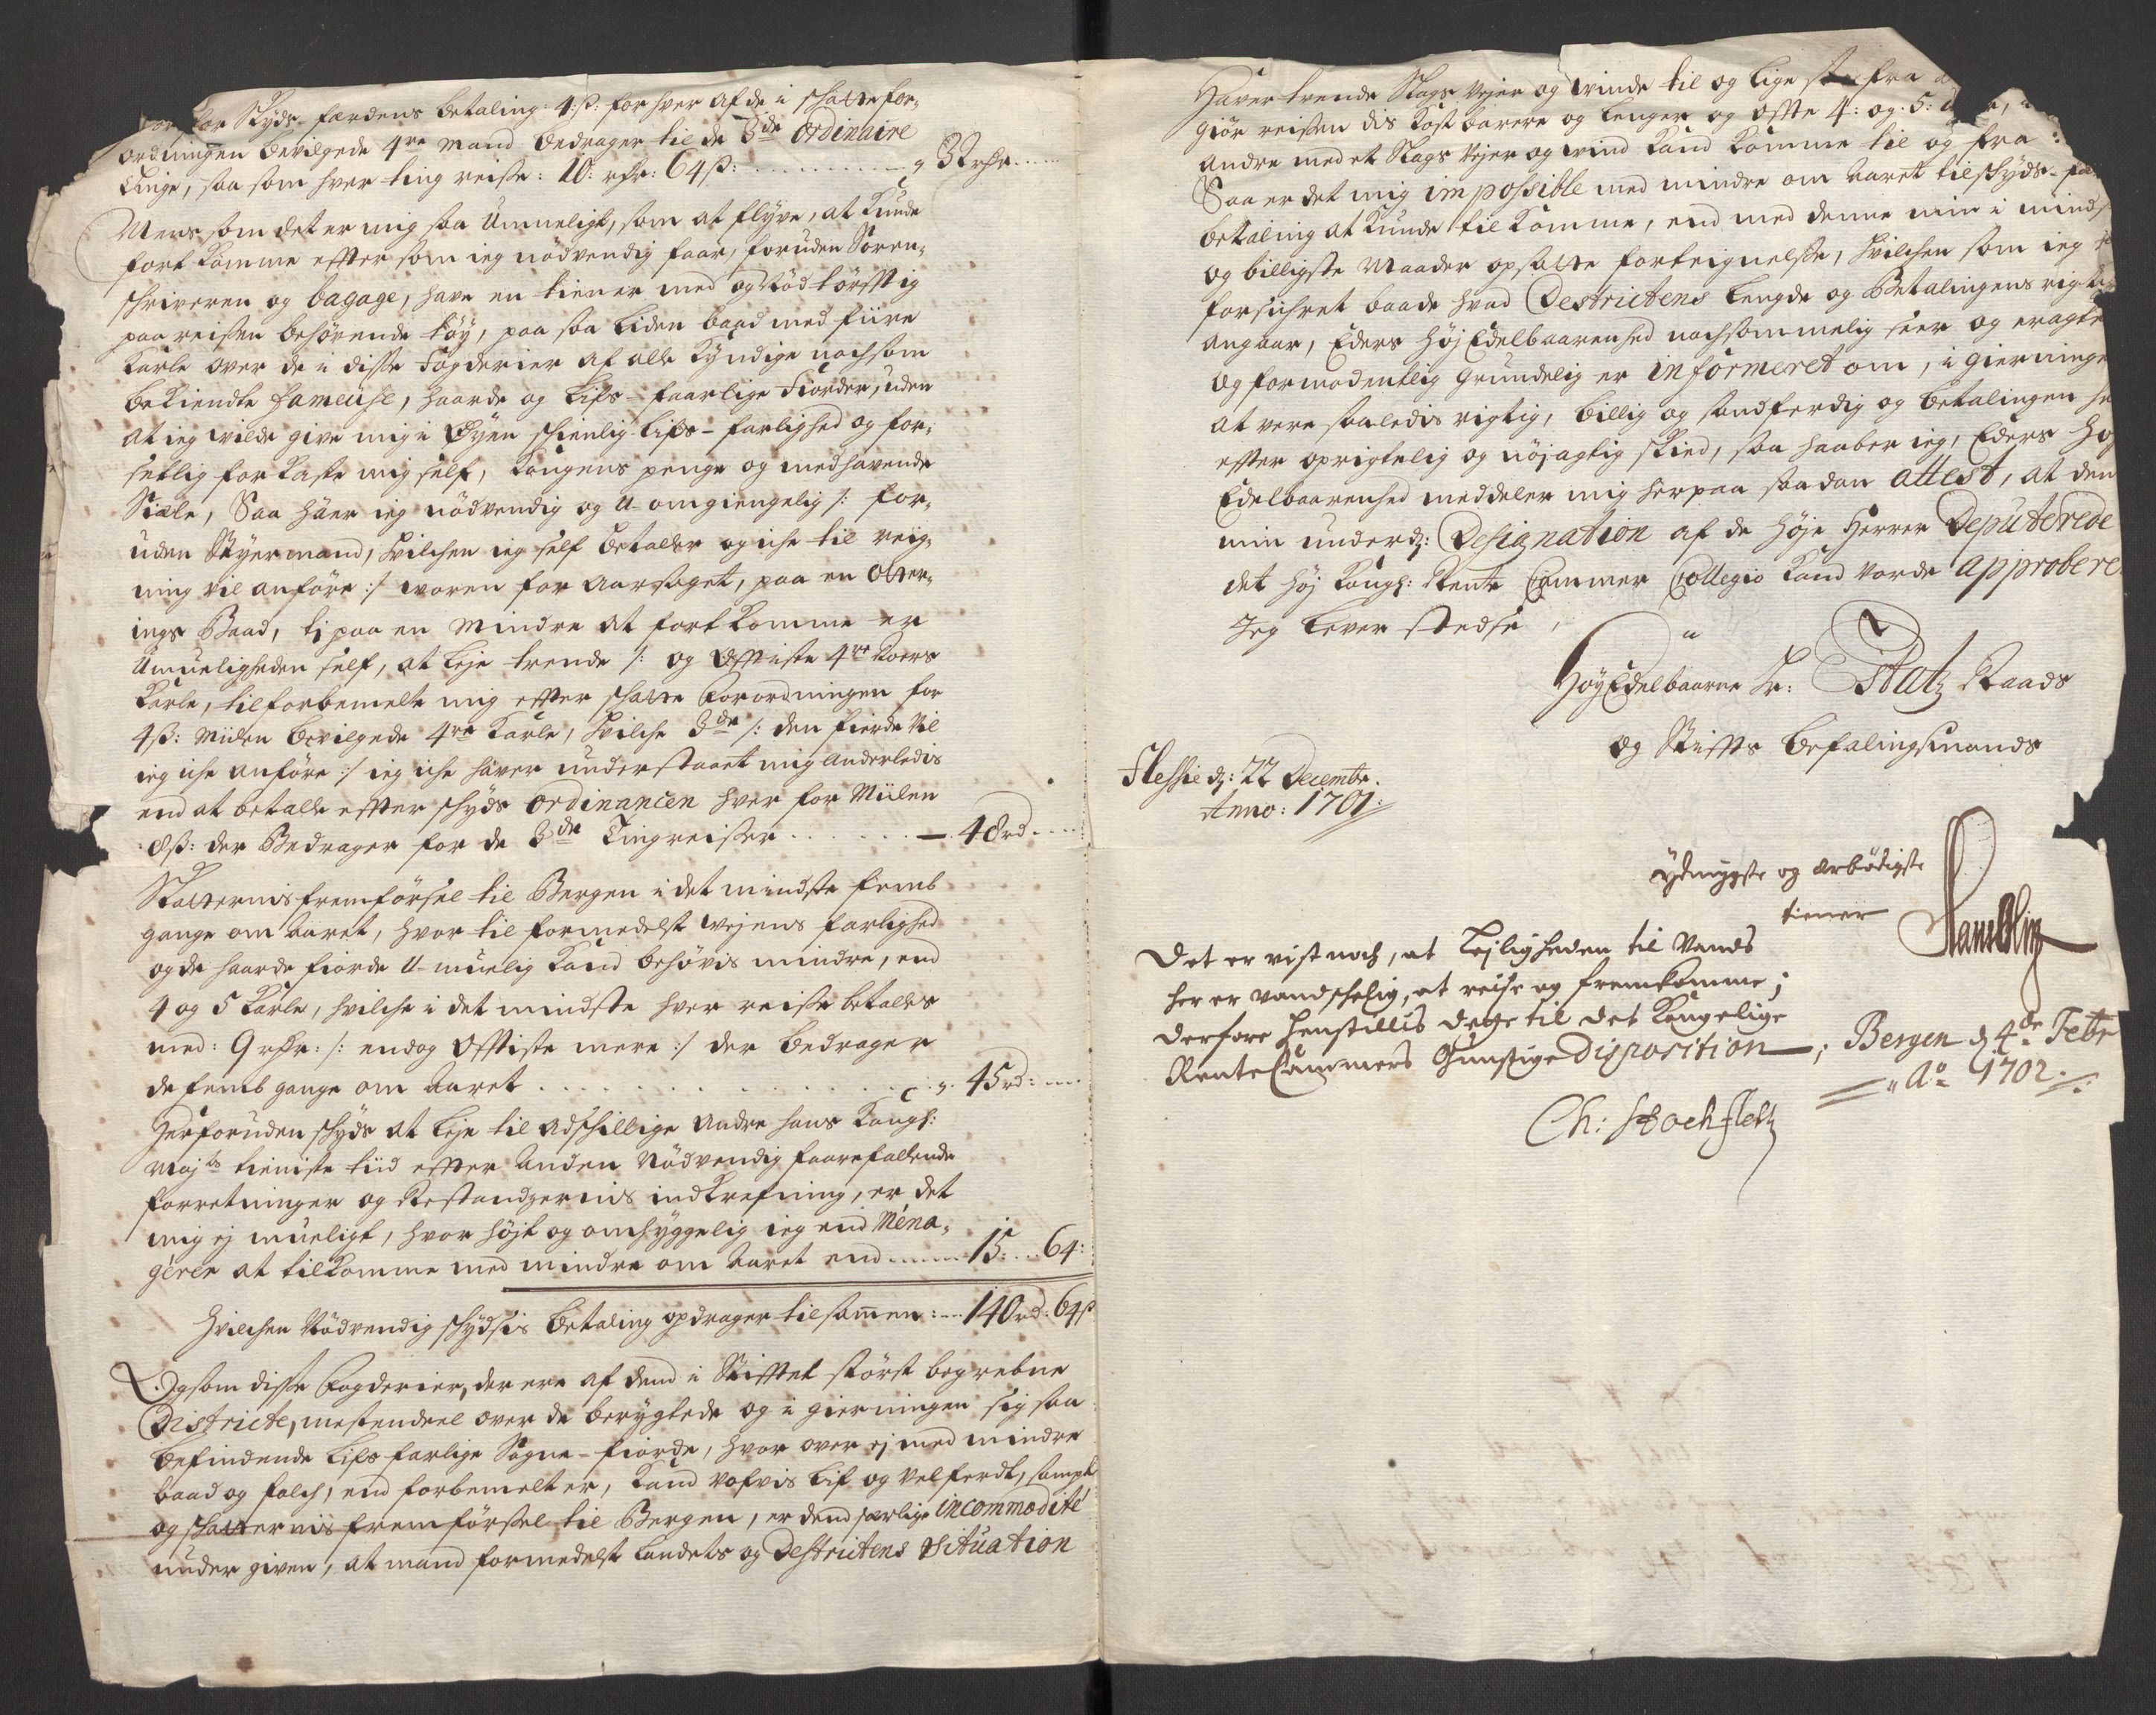 for Skyds-færdens betaling: 4:ß: for hver af de i schatte for¬
ordningen bevilgede 4re Mand bedrager til de 3de Ordinaire
Tinge, saa som hver ting reise: 10: rdr: 64ß: 32 rdr
Mens som det er mig saa Umueligt, som at flyve, at kunde
fort komme efftersom ieg nödvendig faar, foruden Soren¬
schriveren og bagage, have en tiener med og Nødtørfftig
paa reisen behövende töy, paa saa liden baad med fiire
Karle over de i disse Fogderier af alle kyndige nochsom
bekiendte fameuse, haarde og Lifs-faarlige Fiorder, uden
at ieg wilde give mig i Øyen schienlig Lifs-farlighed og for¬
setlig forkaste mig self, Kongens penge og medhavende
Siæle, Saa haver ieg nödvendig og U-omgiengelig /: for¬
uden Styermand, hvilchen ieg self betaller og iche til reig¬
ning vil anföre :/ woren for aarsaget, paa en Otter¬
ings Baad, tj paa en Mindre at fortkomme er
Umueligheden self, at leje trende /: og Offtiste 4re Roers
Karle, til forbemelte mig effter schatte Forordningen for
4ß: Miilen bevilgede 4re Karle, hvilche 3de /: den fierde vil
ieg iche anföre :/ ieg iche haver understaaet mig anderledis
end at betalle effter schyds Ordinancen hver for Miilen
8ß: der Bedrager for de 3de Tingreiser — 48rd
Schatternis fremförsel til Bergen i det mindste femb
gange om aaret, hvor til formedelst wejens farlighed
og de haarde fiorde U-muelig kand behövis mindre, end
4 og 5 Karle, hvilche i det mindste hver reise betalles
med: 9 rdr: /: endog Offtiste mere :/ der bedrager
de femb gange om aaret 45rd:
Herforuden schyds at leje til adschillige andre hans Kongl:
Majts tieniste tiid effter anden Nödvendig faarefallende
forretninger og Restandzernis indkrefning, er det
mig ej mueligt, hvor höjt og omhyggelig ieg end Ména¬
gérer at tilkomme med mindre om aaret end 15: 64:
Hvilchen Nödvendig schydsis betaling opdrager tilsamen: 140rd: 64ß
Ogsom disse Fogderier, der ere af dend i Stifftet störst begrebne
Districte, mestendeel over de berygtede og i gierningen sig saa
befindende Lifs farlige Sogne-fiorde, hvor over ej med mindre
baad og folch, end forbemelt er, kand vofvis Lif og velferdt, sampt
og schatternis fremförsel til Bergen, er dend særlige incommodité
under given, at mand formedelst Landets og Destrictens Situation
Haver trende Slags Vejer og winde til og lige saa fra
giör reisen dis kostbarere og lenger og offte 4: og 5:
andre med et Slags Vejer og wind kand komme til og fra:
Saa er det mig impossible med mindre om aaret til schyds-
betaling at kunde tilkomme, end med denne min i minds
og billigste Maader opsatte forteignelse, hvilchen som ieg
forsichret baade hvad Destrictens lengde og Betalingens rigtig
angaar, Eders Höj Edelbaarenhed nochsommelig seer og eragte
og formodentlig grundelig er informeret om, i gierninge
at vere saaledis rigtig, billig og sandferdig og betalingen
effter oprigtelig og nöjagtig skied, saa haaber ieg, Eders Höj
Edelbaarenhed meddeler mig herpaa saadan attest, at den
min underd: Designation af de Höje Herrer Deputerede
det höj Kongl: Rente Cammer Collegio kand vorde approbere
Jeg lever stedse
Höy Edelbaarne Hr: Etatz Raads
og Stiffts befalingsmands
Flesche d: 22 Decembr.
Anno: 1701:
ydmygste og ærbödigste
tiener
Det er vist noch, at Lejligheden til Vands
her er vandschelig, at reise og fremkomme;
derfore henstillis dette til det Kongelige
Rente Cammers Gunstige Disposition;
Bergen d 4de Febr
Ao 1702.
Ch: Stockfleth